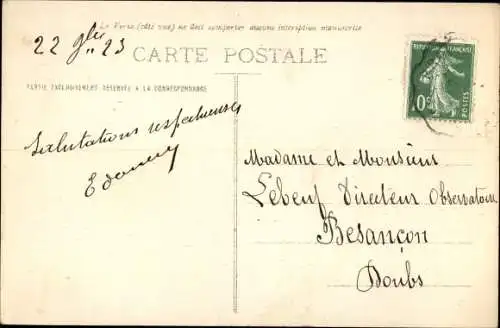 Le Verso (côté vue) ne doit comporter aucune inscription manuscrite
22 9bre 23
CARTE POSTALE
PARTIE EXCLUSIVEMENT RÉSERVÉE A LA CORRESPONDANCE
RÉPUBLIQUE FRANÇAISE
10c
POSTES
Salutations respectueuses
Madame et Monsieur
Lebeuf Directeur Observatoire
Besançon
Doubs